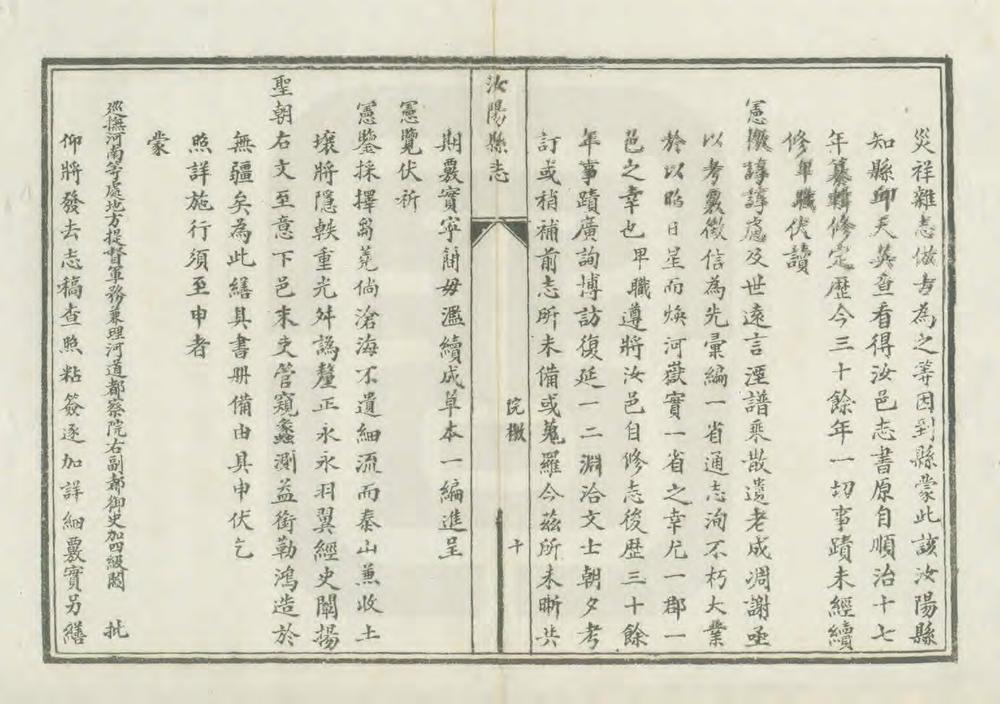 災祥雜志倣古為之等因到縣蒙此該汝陽縣
知縣邱天英查看得汝邑志書原自順治十七
年纂輯修定歷今三十餘年一切事蹟未經續
修卑職伏讀
憲檄諄諄慮及世遠言湮譜乘散遺老成凋謝亟
以考覈徵信為先彙編一省通志洵不朽大業
於以昭日星而煥河嶽實一省之幸尤一郡一
邑之幸也卑職遵將汝邑自修志後歷三十餘
年事蹟廣詢博訪復延一二淵洽文士朝夕考
訂或稍補前志所未備或蒐羅今茲所未晰共
汝陽縣志
院檄
十
期覈實寧簡毋濫續成草本一編進呈
憲覽伏祈
憲鑒採擇芻蕘倘滄海不遺細流而泰山兼收土
壤將隱軼重光舛譌釐正永永羽翼經史闡揚
聖朝右文至意下邑末吏管窺蠡測益銜勒鴻造於
無疆矣為此繕具書册備由具申伏乞
照詳施行須至申者
蒙
廵撫河南等處地方提督軍務兼理河道都察院右副都御史加四級閻 批
仰將發去志稿查照粘簽逐加詳細覈實另繕